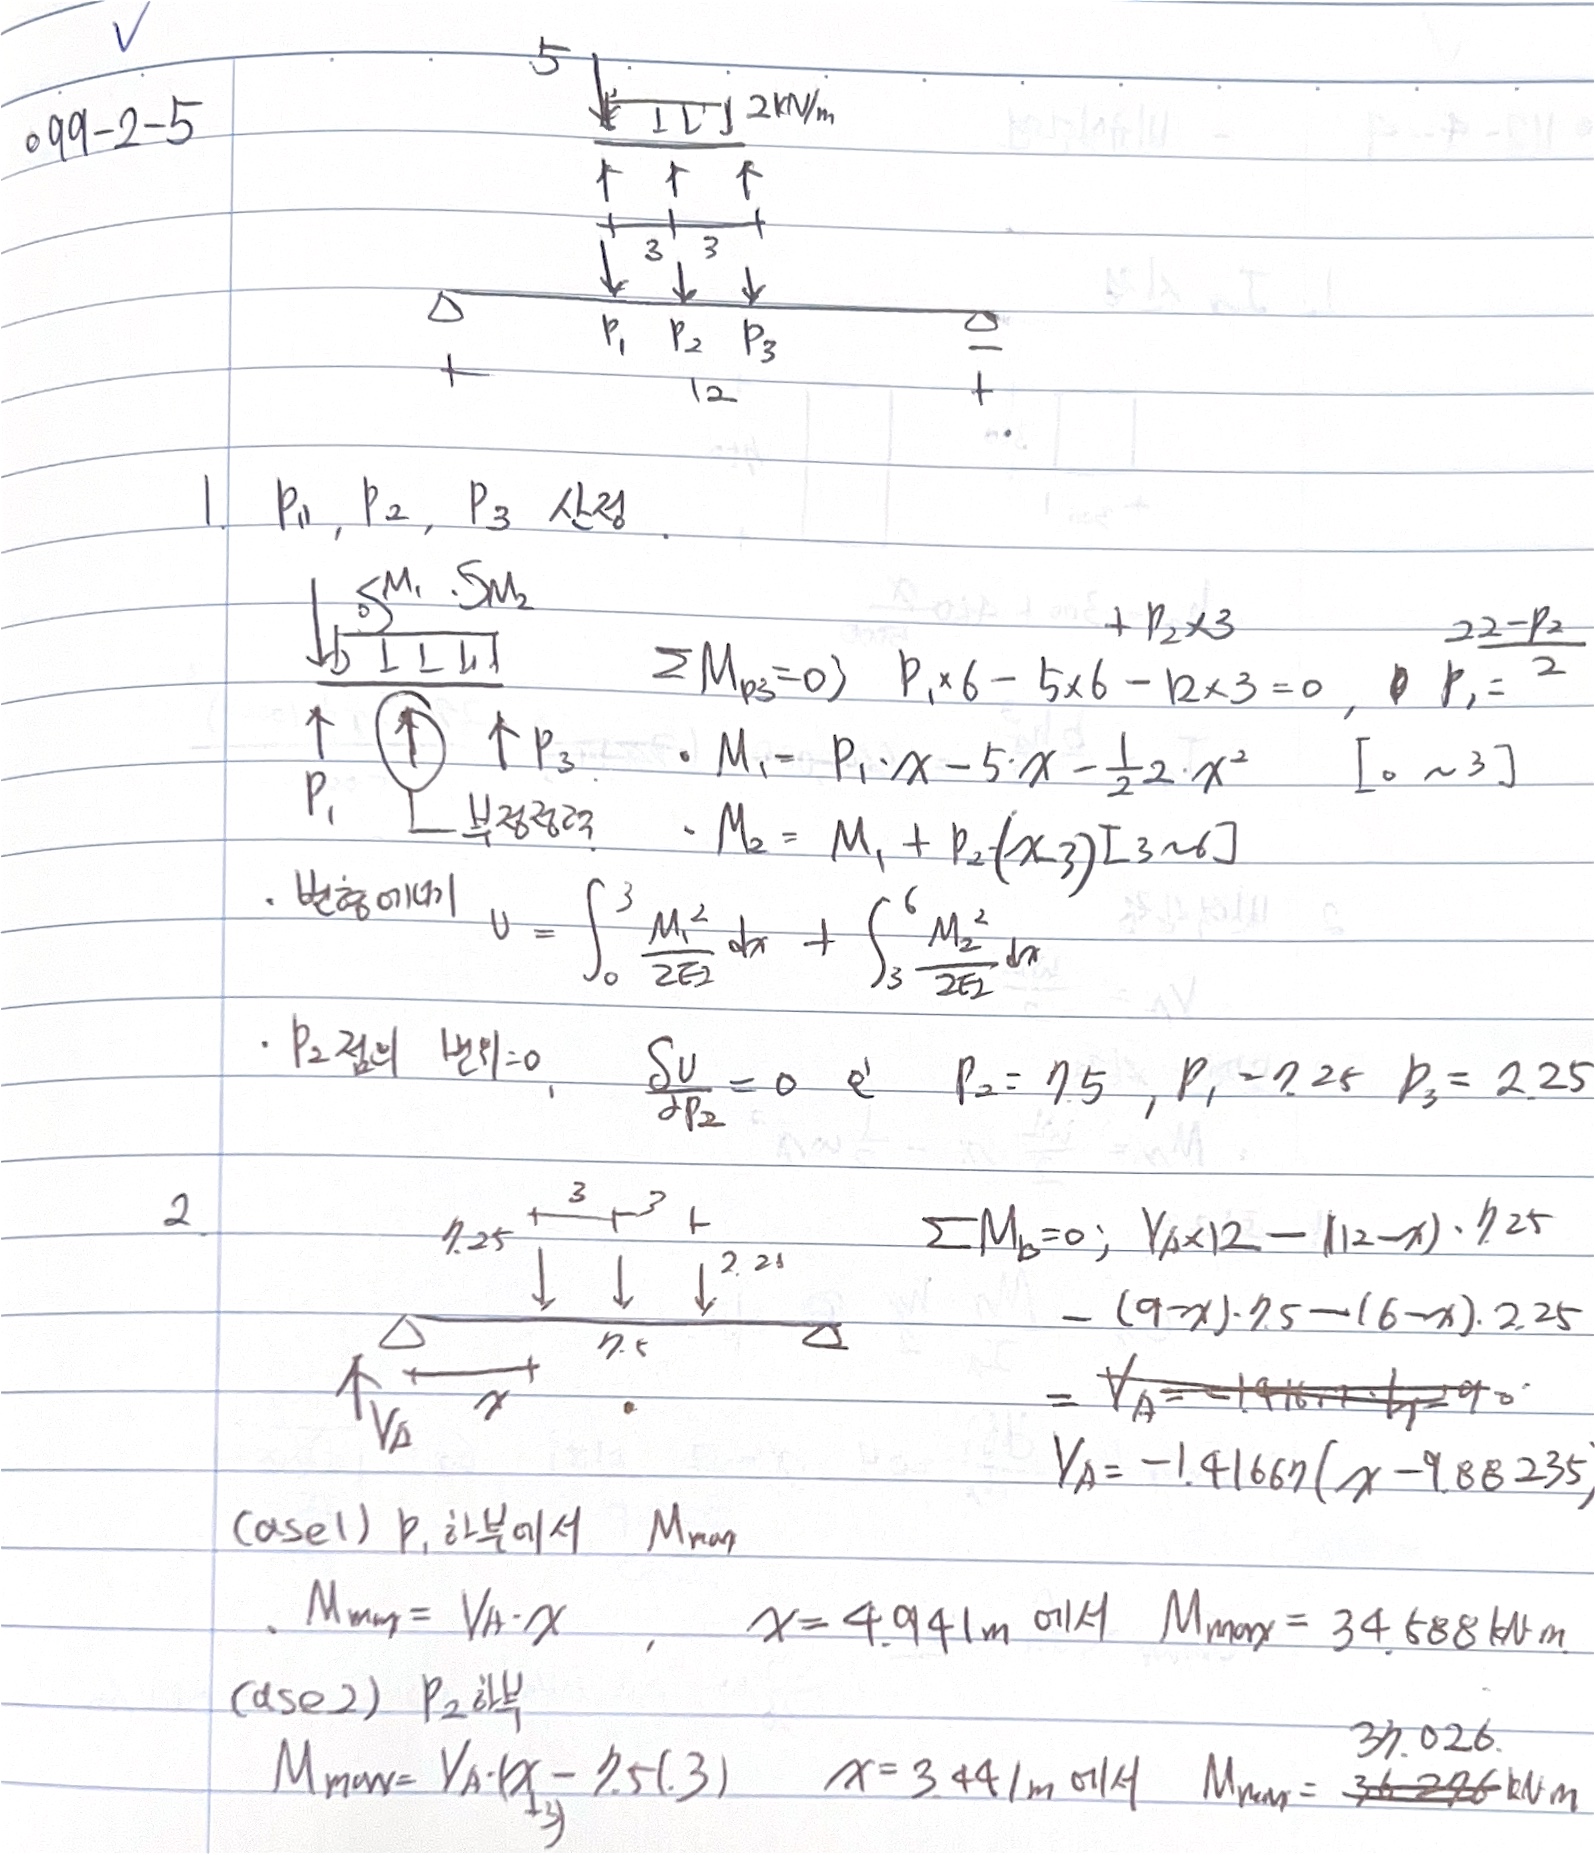 √
099-2-5
5
2kN/m
3 3
P₁ P₂ P₃
12
1. P₁, P₂, P₃ 산정
M₁ M₂
+ P₂×3
ΣM_P3=0) P₁×6 - 5×6 - 12×3 = 0, P₁ = (22-P₂)/2
P₁ P₃
부정정력
· M₁ = P₁·x - 5·x - ½2·x² [0 ~3]
· M₂ = M₁ + P₂(x-3) [3~6]
· 변형에너지 U = ∫₀³ M₁²/2EI dx + ∫₃⁶ M₂²/2EI dx
· P₂점의 변위=0, δU/∂P₂ = 0 P₂ = 7.5, P₁ = 7.25 P₃ = 2.25
2.
3 3
7.25 2.25
7.5
x
V_A
ΣM_b=0; V_A×12 - (12-x)·7.25
- (9-x)·7.5 - (6-x)·2.25
=
V_A = -1.41667(x-9.88235)
(case1) P₁ 하부에서 Mmax
· Mmax = V_A·x, x = 4.941m 에서 Mmax = 34.588 kN m
(case2) P₂ 하부
37.026.
Mmax = V_A·(x+3) - 7.5(.3) x = 3.441m 에서 Mmax = 36.276 kN m